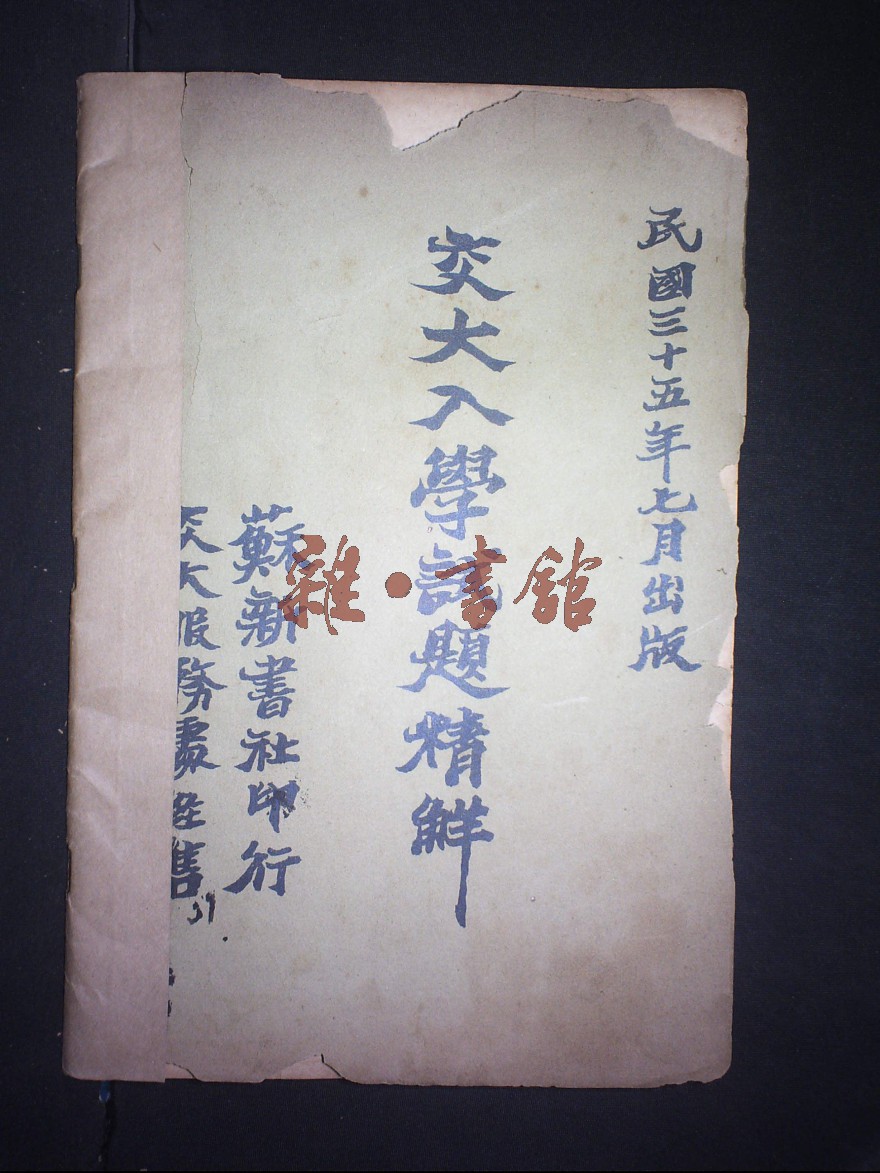 民國三十五年七月出版
交大入學試題精觧
蘇新書社印行
交大服務處經售
雜·書館